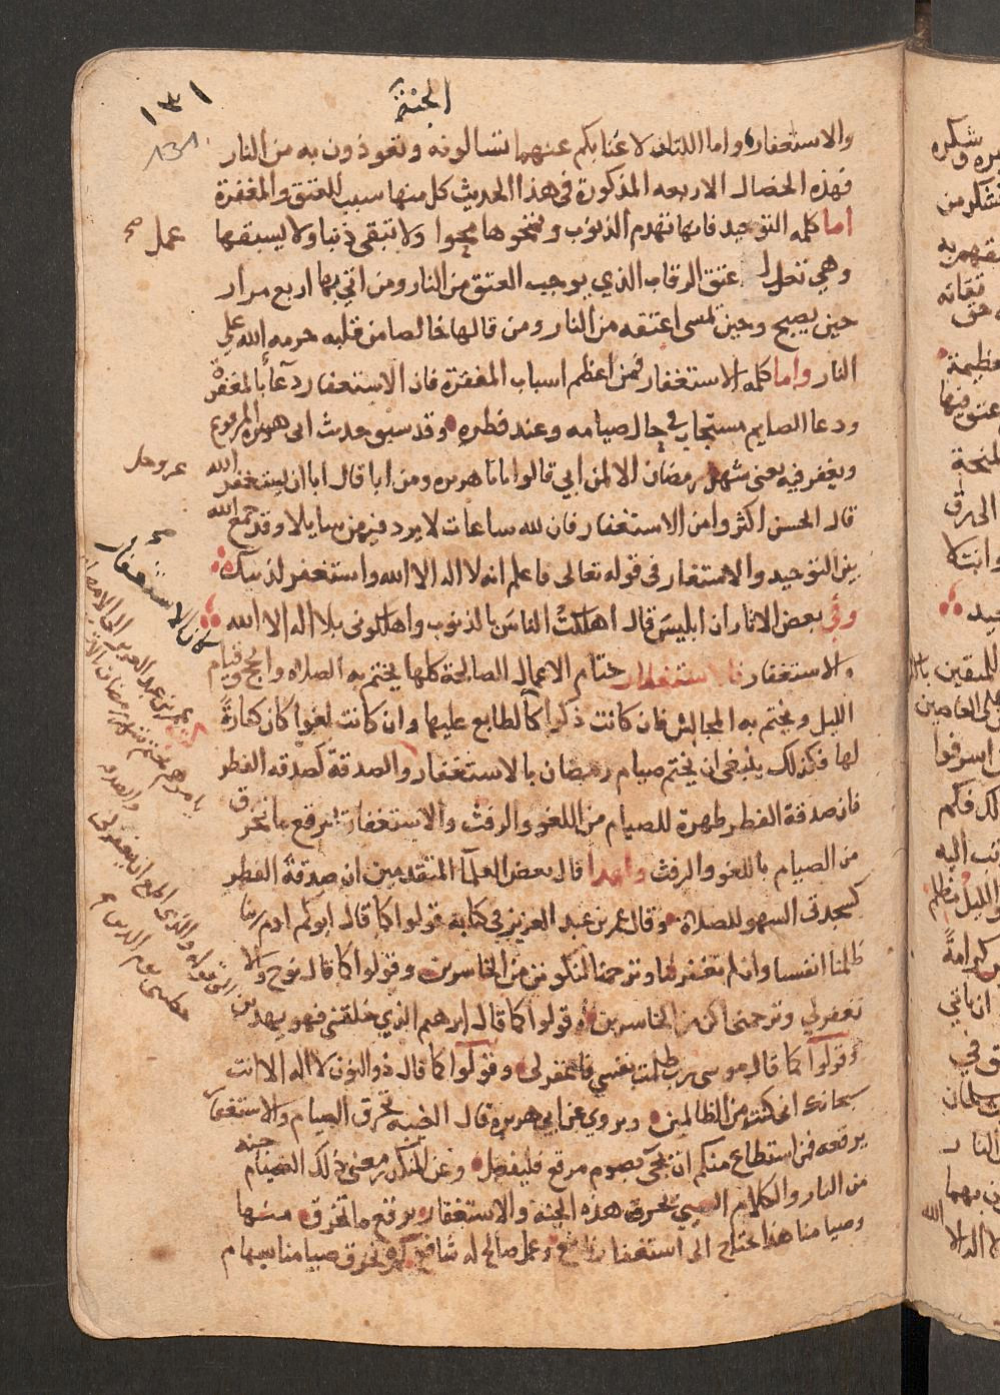 ١٣١
131
الجنة
والاستغفار واما اللتان لا غنا بكم عنهما تسالونه وتعوذون به من النار
فهذه الخصال الاربعه المذكورة في هذا الحديث كل منها سبب للعتق والمغفرة
اما كلمه التوحيد فانها تهدم الذنوب وتمحوها محوا ولا تبقي ذنبا ولا يسبقها
عمل صح
وهي تعدل عتق الرقاب الذي يوجب العتق من النار ومن اتي بها اربع مرار
حين يصبح وحين يمسى اعتقه من النار ومن قالها خالصا من قلبه حرمه الله علي
النار واما كلمه الاستغفار فمن اعظم اسباب المغفرة فان الاستغفار دعآ بالمغفرة
ودعا الصايم مستجاب في حال صيامه وعند فطره وقد سبق حديث ابى هريره المرفوع
ويغفر فيه يعنى شهر رمضان الا لمن ابي قالوا يابا هريره ومن ابا قال ابا ان يستغفر الله
عز وجل
قال الحسن اكثروا من الاستغفار فان لله ساعات لا يرد فيهن سايلا وقد جمع الله
بين التوحيد والاستغفار فى قوله تعالى فاعلم انه لا اله الا الله واستغفر لذنبك
وفي بعض الاثار ان ابليس قال اهلكت الناس بالذنوب واهلكونى بلا اله الا الله
والاستغفار فالاستغفار ختام الاعمال الصالحة كلها يختم به الصلاه والحج وقيام
الليل ويختم به المجالس فان كانت ذكرا كالطابع عليها وان كانت لغوا كان كفارة
لها فكذلك ينبغى ان يختم صيام رمضان بالاستغفار والصدقة كصدقه الفطر
فان صدقة الفطر طهرة للصيام من اللغو والرفث والاستغفار يرقع ما تخرق
من الصيام باللغو والرفث ولهذا قال بعض العلمآ المتقدمين ان صدقة الفطر
كسجدتى السهو للصلاة وقال عمر بن عبد العزيز في كتابه قولوا كما قال ابوكم ادم ربنا
ظلمنا انفسنا وان لم تغفر لنا وترحمنا لنكونن من الخاسرين وقولوا كما قال نوح والا
تغفرلي وترحمنى اكن من الخاسرين وقولوا كما قال ابرهيم الذي خلقنى فهو يهدين
وقولوا كما قال موسى رب ظلمت نفسي فاغفر لى وقولوا كما قال ذو النون لا اله الا انت
سبحانك انى كنت من الظالمين ويروي عن ابي هريرة قال الغيبه تخرق الصيام والاستغفار
يرقعه فمن استطاع منكم ان يجي بصوم مرقع فليفعل وعن المنكدر معنى ذلك الصيام جنه
من النار والكلام السيى يخرق هذه الجنه والاستغفار يرقع ما تخرق منها
وصيامنا هذا يحتاج الى استغفار نافع وعمل صالح له شافع كم نخرق صيامنا بسهام
كان الاستغفار
صح
عمر بن عبد العزيز الى الامصار
يامرهم بختم شهر رمضان بالاستغفار
والصدقه
والذى اطمع ان يغفر لى
خطيتى يوم الدين